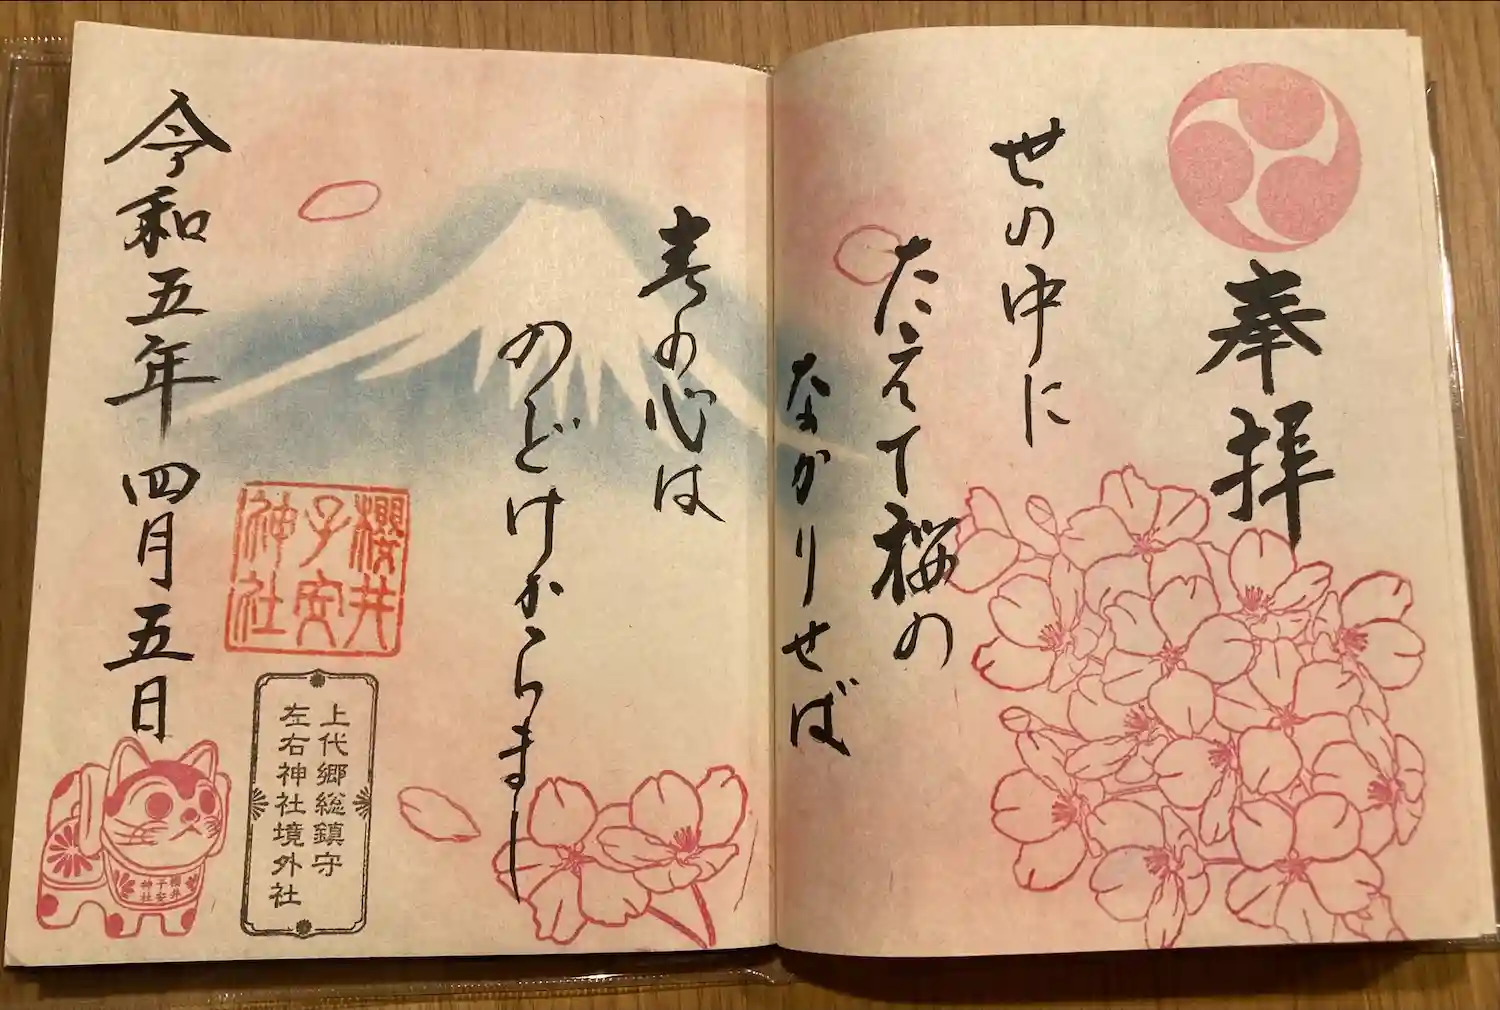 奉拝
世の中に
たえて桜の
なかりせば
春の心は
のどけからまし
櫻井
子安
神社
上代郷総鎮守
左右神社境外社
令和五年四月五日
櫻井
子安
神社